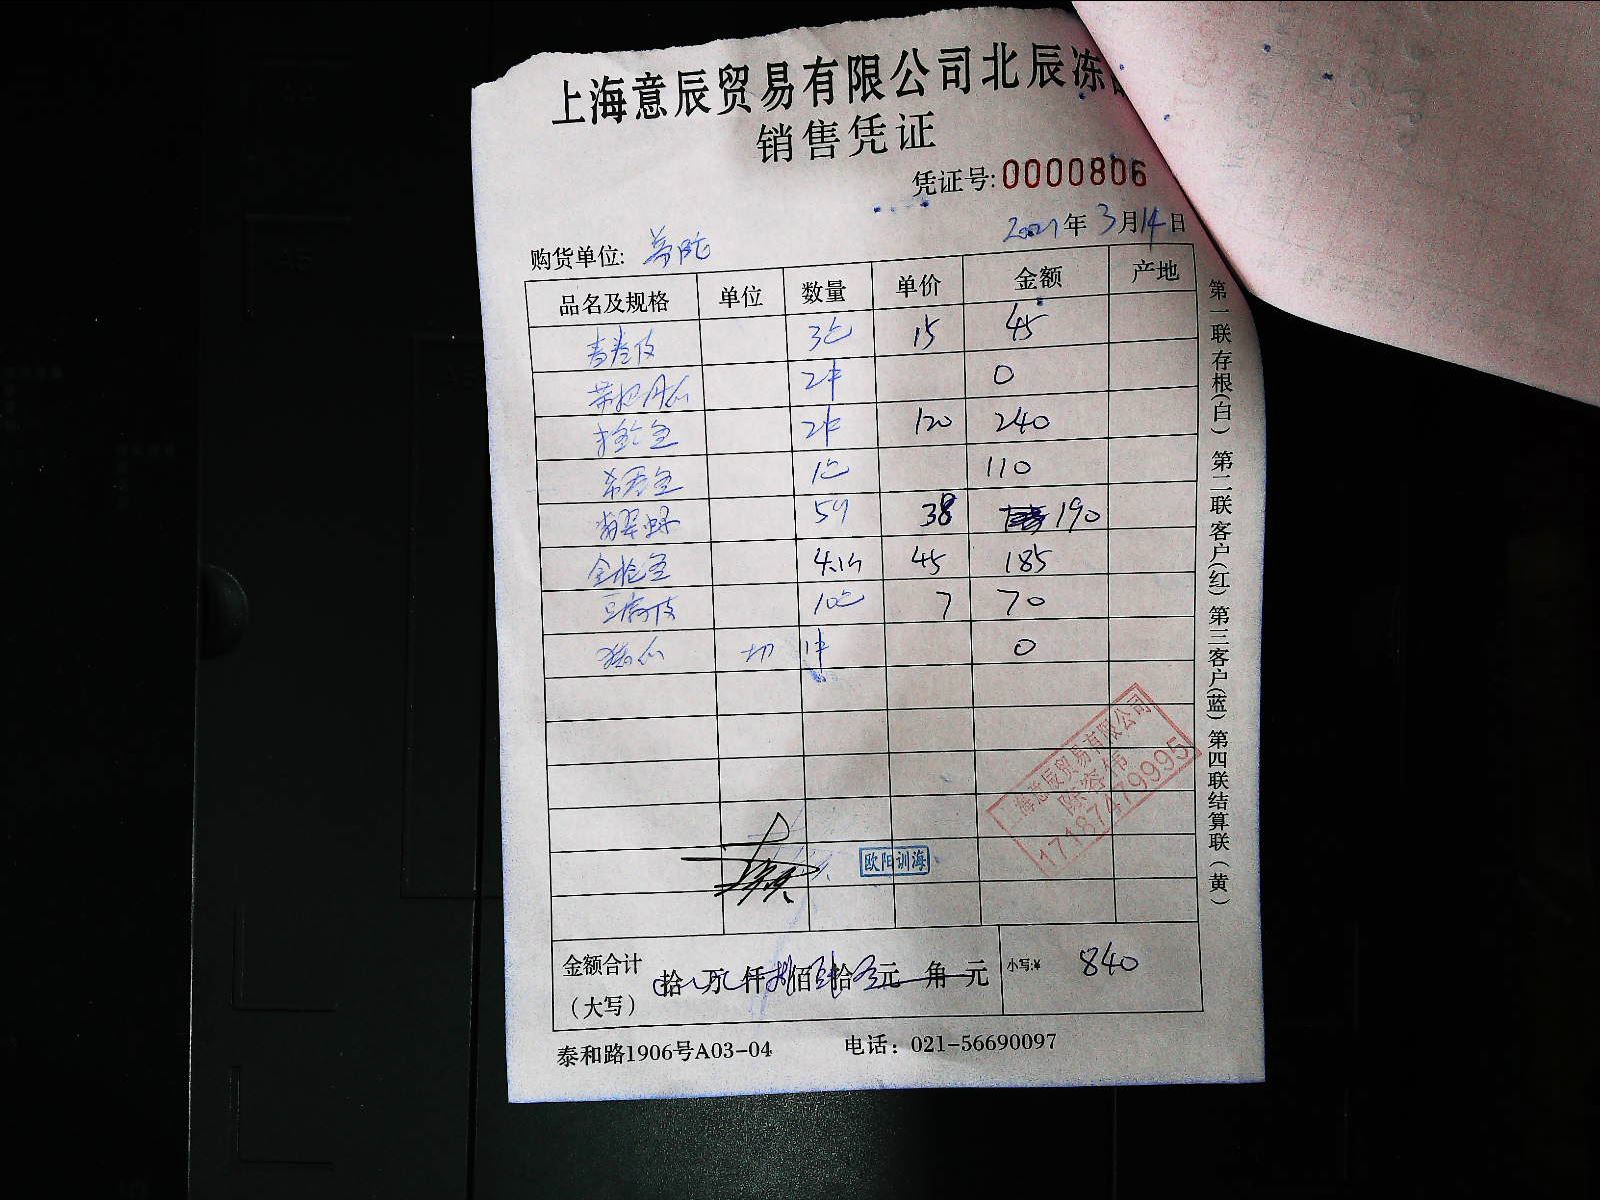 上海意辰贸易有限公司北辰冻
销售凭证
凭证号:0000806
2021年3月14日
购货单位:
品名及规格 单位 数量 单价 金额 产地
3包 15 45
2件 0
2件 120 240
1包 110
翡翠虾 5 38 190
4.1 45 185
豆腐皮 10包 7 70
切 1件 0
上海意辰贸易有限公司
陈容伟
17187479995
欧阳训海
金额合计
(大写)
拾 万 仟 佰 拾 元 角 元
小写:¥ 840
泰和路1906号A03-04 电话:021-56690097
第一联存根(白) 第二联客户(红) 第三客户(蓝) 第四联结算联(黄)